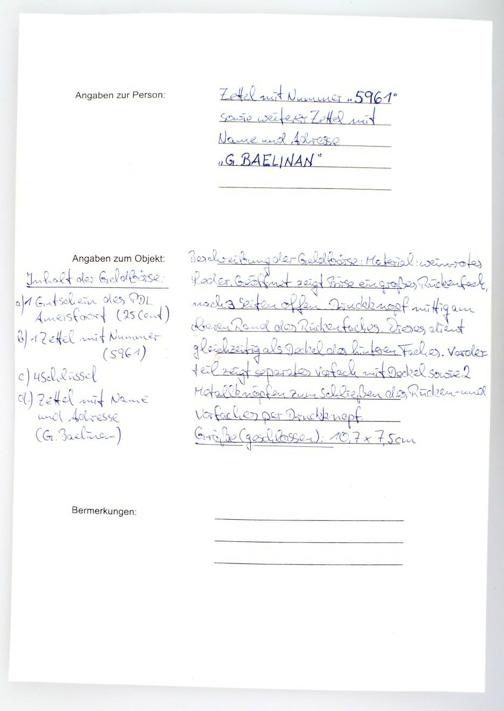 Angaben zur Person:
Zettel mit Nummer „5961"
sowie weiterer Zettel mit
Name und Adresse
„G. BAELINAN"
Angaben zum Objekt:
Inhalt der Geldbörse:
a) 1 Gutschein des PDL
Amersfoort (25 Cent)
b) 1 Zettel mit Nummer
(5961)
c) 4 Schlüssel
d) Zettel mit Name
und Adresse
(G. Baelinan)
Beschreibung der Geldbörse: Material: weinrotes
Leder. Geöffnet zeigt Börse ein großes Rückenfach,
nach 3 Seiten offen. Druckknopf mittig am
oberen Rand des Rückenfaches. Dieses dient
gleichzeitig als Deckel des hinteren Faches. Vorder
teil zeigt separates Vorfach mit Deckel sowie 2
Metallknöpfen zum Schließen des Rücken- und
Vorfaches per Druckknopf
Größe (geschlossen): 10,7 x 7,5cm
Bermerkungen: